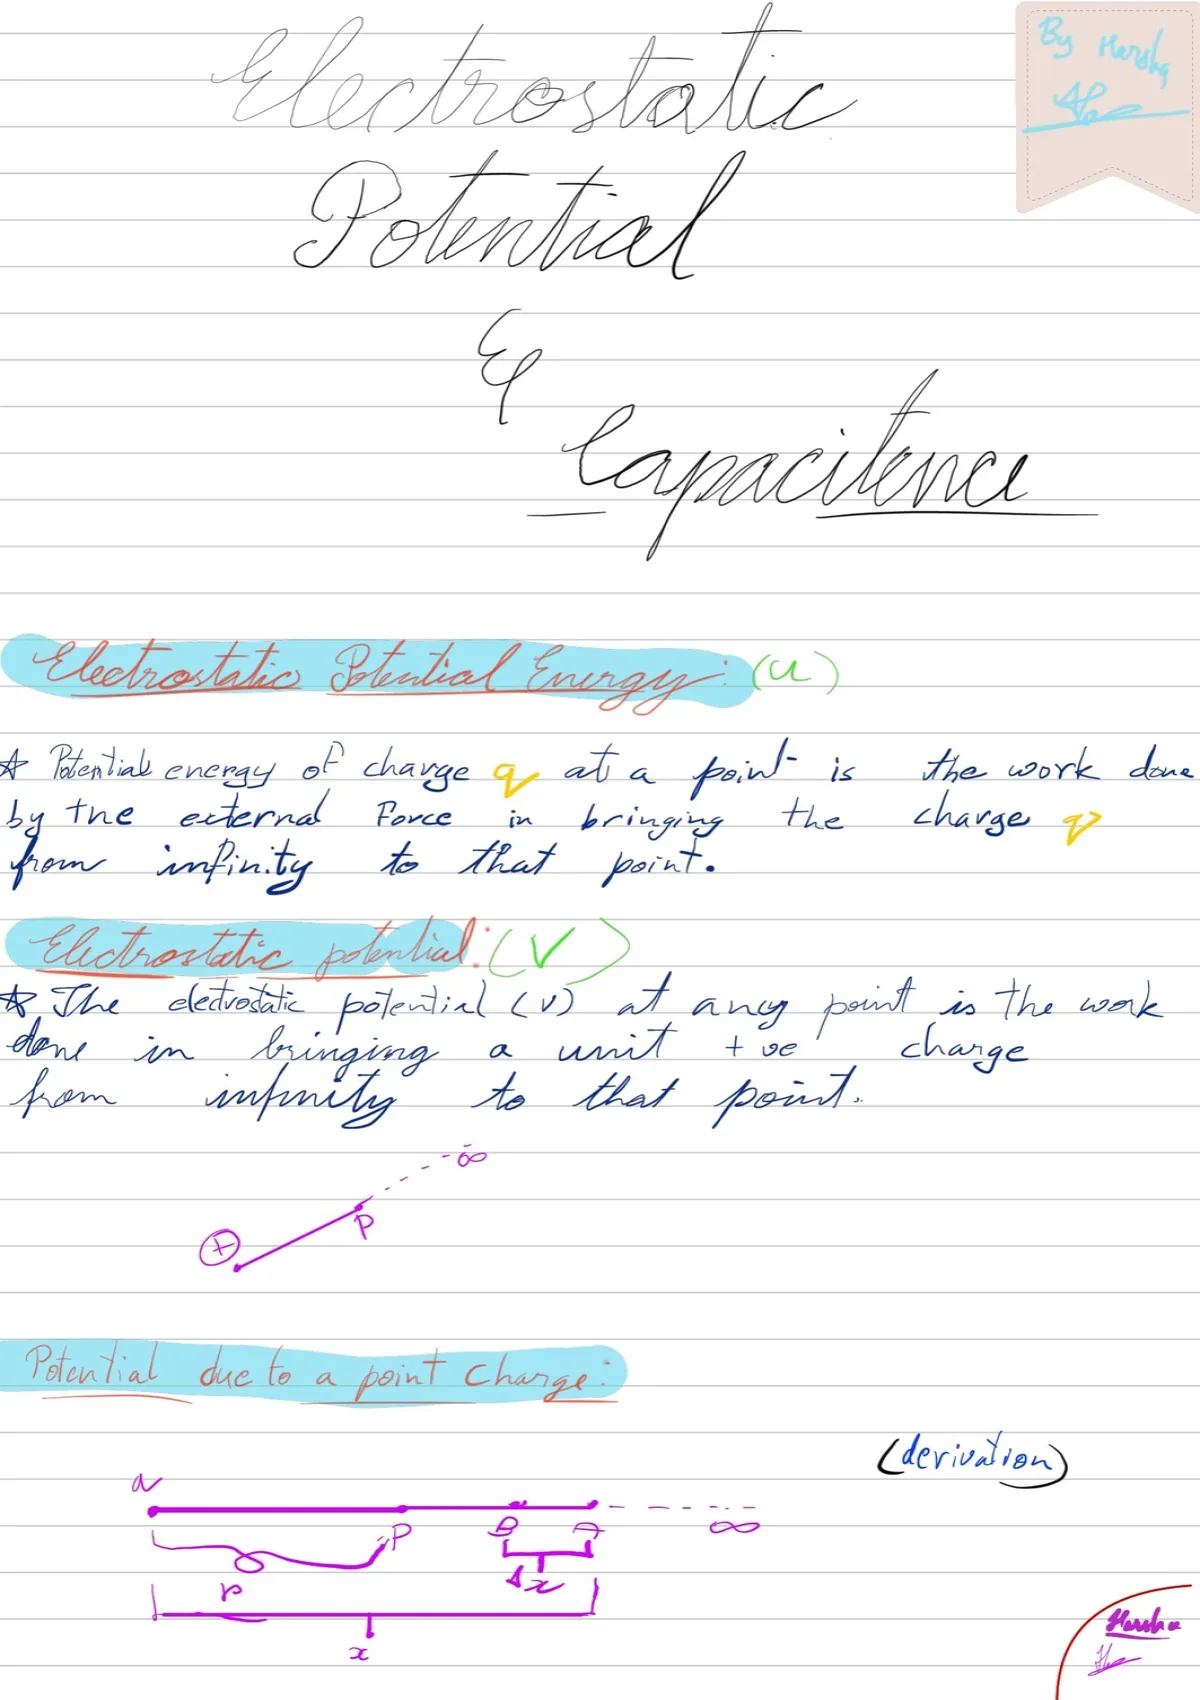 Electrostatic
Potential
&
Capacitence
By Harsha
Electrostatic Potential Energy: (u)
☆ Potential energy of charge q at a point is the work done
by the external Force in bringing the charge q
from infinity to that point.
Electrostatic potential: (V)
☆ The electrostatic potential (v) at any point is the work
done in bringing a unit +ve charge
from infinity to that point.
∞
P
+
Potential due to a point charge:
(derivation)
P B A ∞
r Δx
x
Harsha